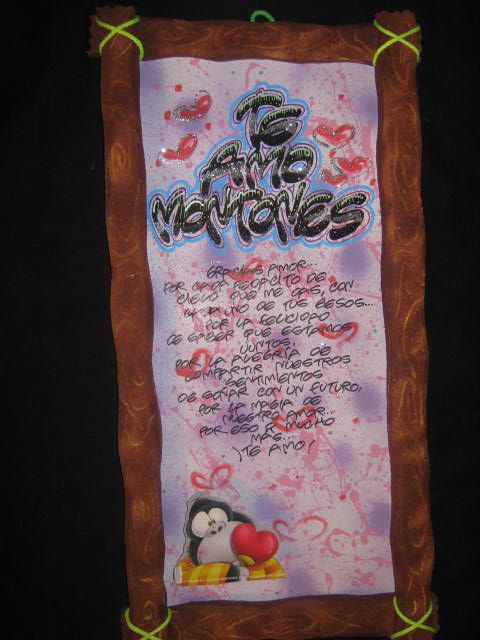 TE
AMO
MONTONES
GRACIAS AMOR...
POR CADA PEDACITO DE
CIELO QUE ME DAS, CON
CADA UNO DE TUS BESOS...
POR LA FELICIDAD
DE SABER QUE ESTAMOS
JUNTOS,
POR LA ALEGRÍA DE
COMPARTIR NUESTROS
SENTIMIENTOS
DE SOÑAR CON UN FUTURO,
POR LA MAGIA DE
NUESTRO AMOR...
POR ESO Y MUCHO
MAS...
¡TE AMO!